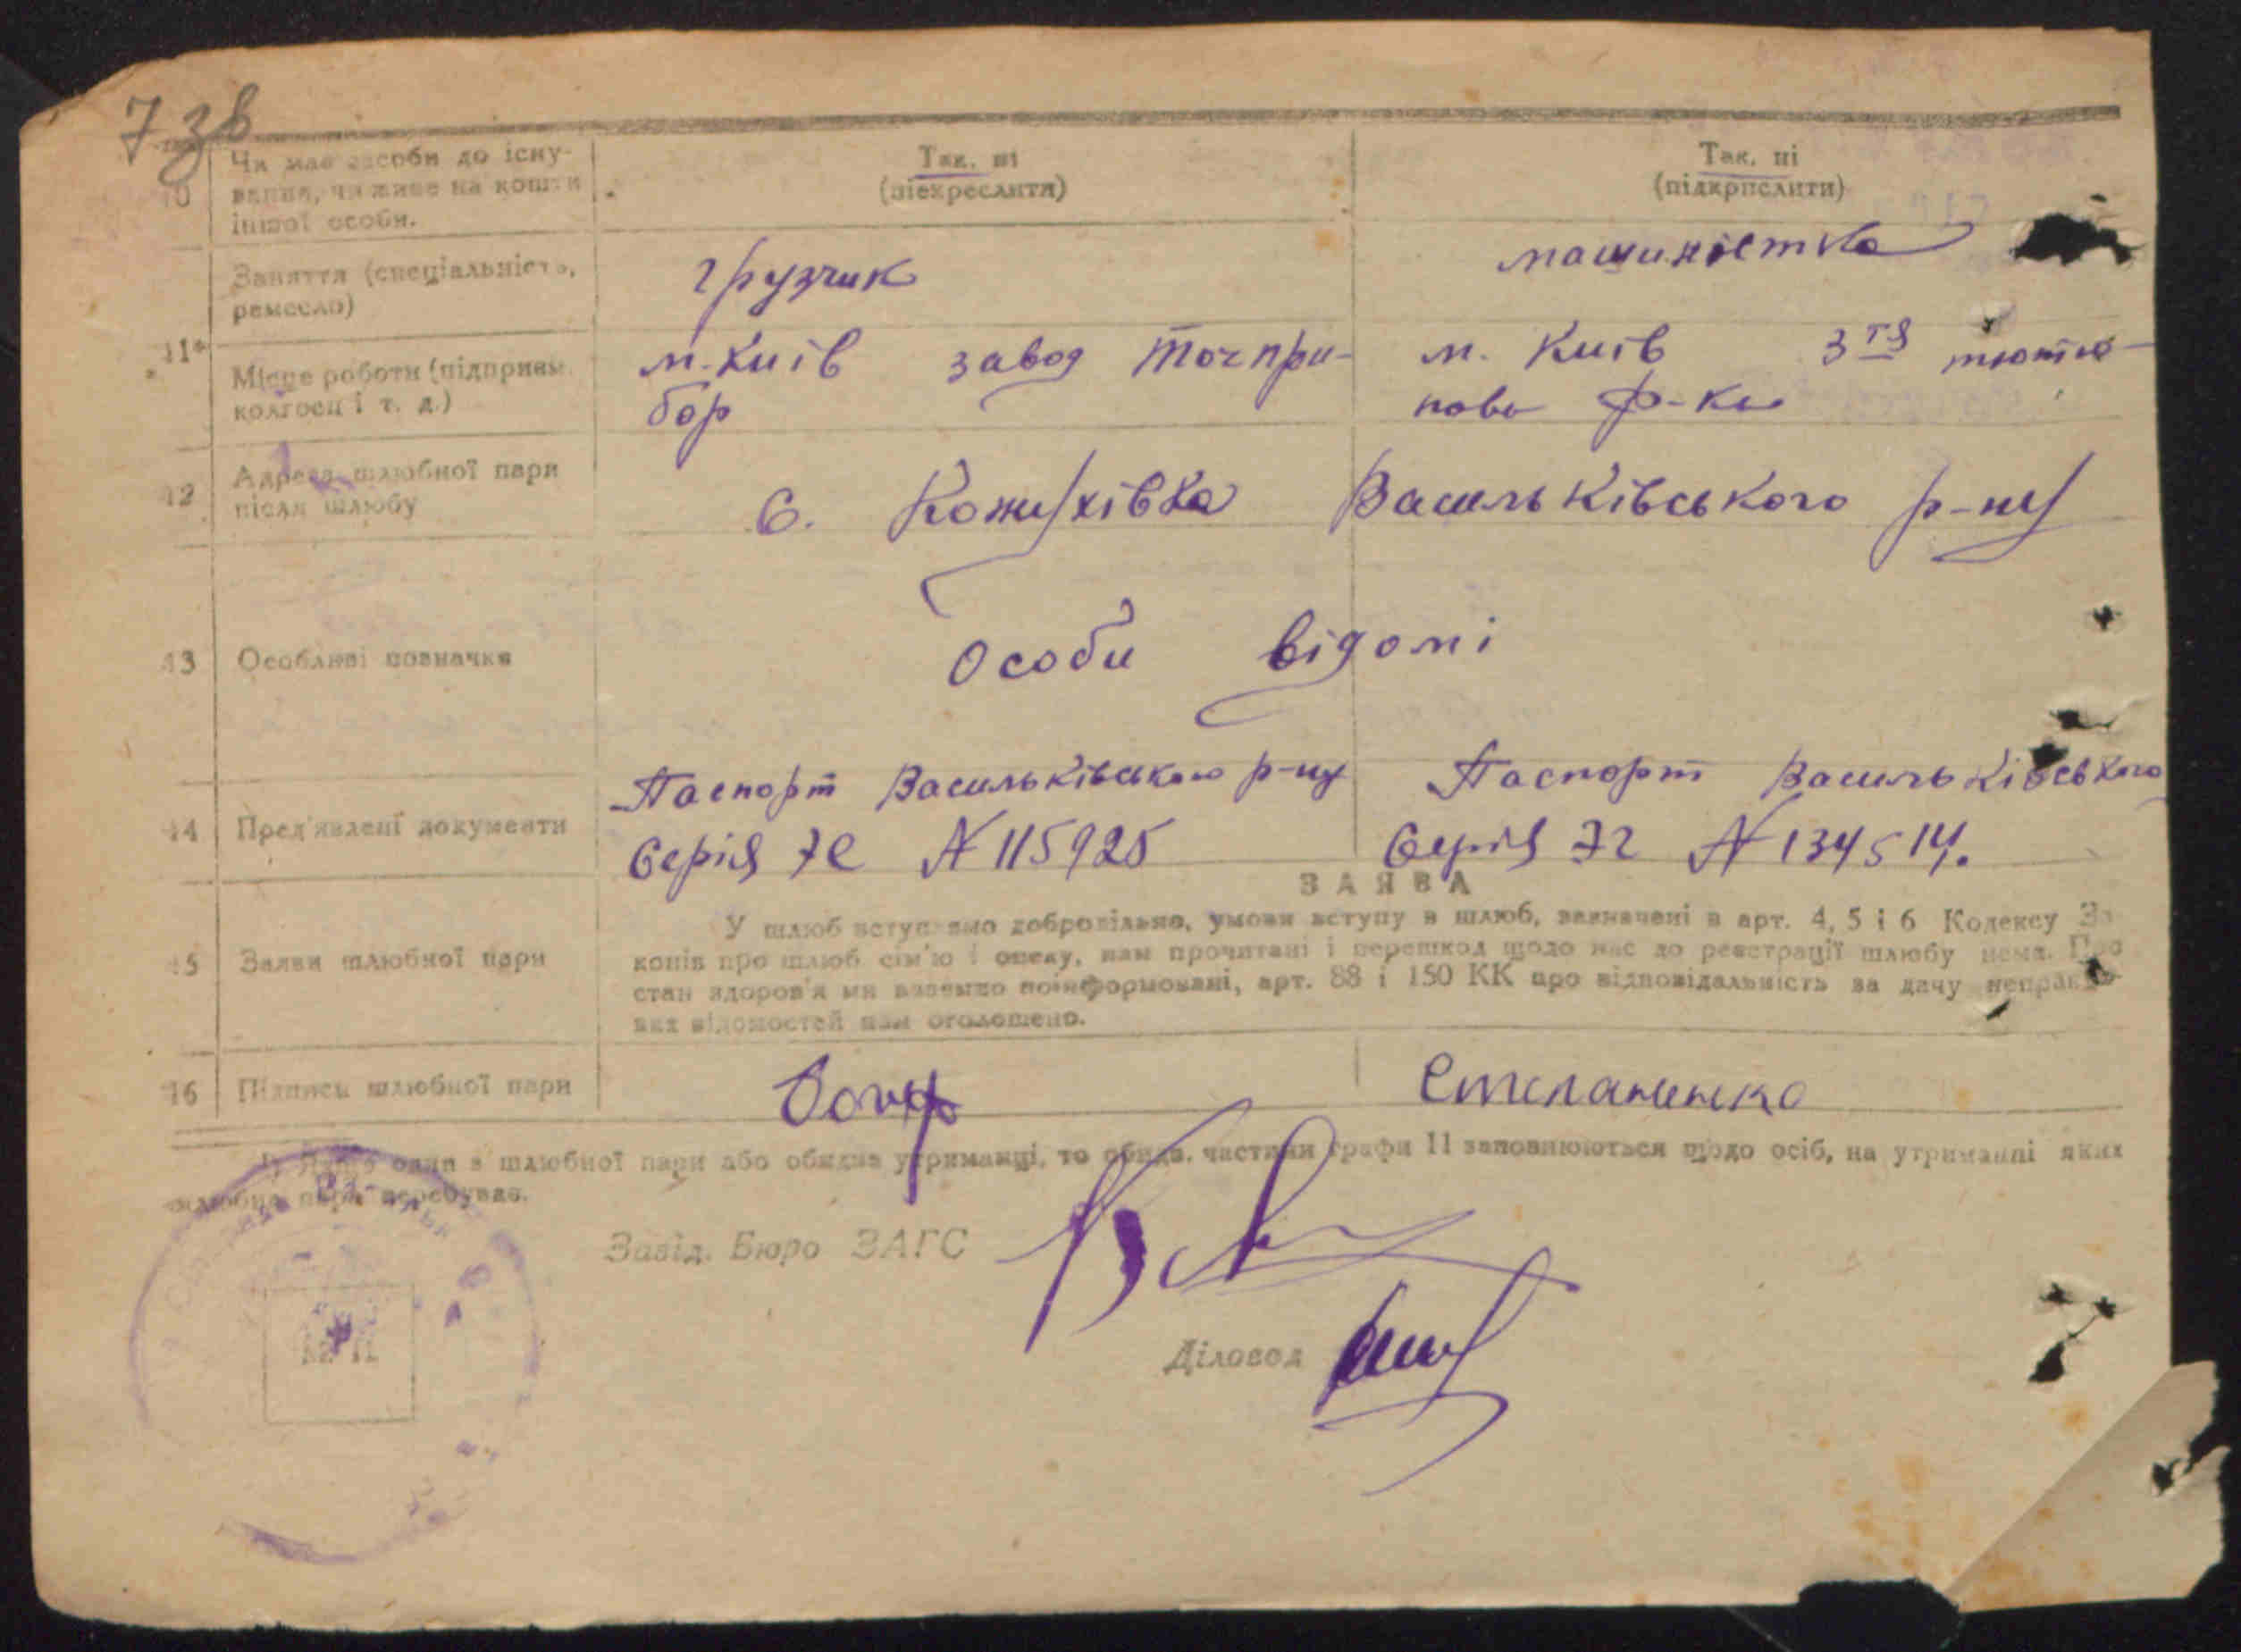 7 зв
10
Чи має засоби до існу-
вання, чи живе на кошти
іншої особи.
Так. ні
(підкреслити)
Так, ні
(підкрислити)
11*
Заняття (спеціальність,
ремесло)
грузчик
машиністка
Місце роботи (підприєм.
колгосп і т. д.)
м. Київ завод Точпри-
бор
м. Київ 3тя тютю-
нова ф-ка
12
Адреса шлюбної пари
після шлюбу
с. Кожухівка Васильківського р-ну
13
Особливі позначки
Особи відомі
14
Пред'явлені документи
Паспорт Васильківського р-ну
Серія N 115925
Паспорт Васильківського
Серія N 134514.
15
Заяви шлюбної пари
ЗАЯВА
У шлюб вступаємо добровільно, умови вступу в шлюб, зазначені в арт. 4, 5 і 6 Кодексу За
конів про шлюб сім'ю і опеку, нам прочитані і перешкод щодо нас до реєстрації шлюбу нема. Про
стан здоров'я ми взаємно поінформовані, арт. 88 і 150 КК про відповідальність за дачу неправ
них відомостей нам оголошено.
16
Підписи шлюбної пари
Степаненко
1) Якщо одна з шлюбної пари або обидва утриманці, то обидв. частини графи 11 заповнюються щодо осіб, на утриманні яких
шлюбна пара перебуває.
Завід. Бюро ЗАГС
Діловод
М. П.